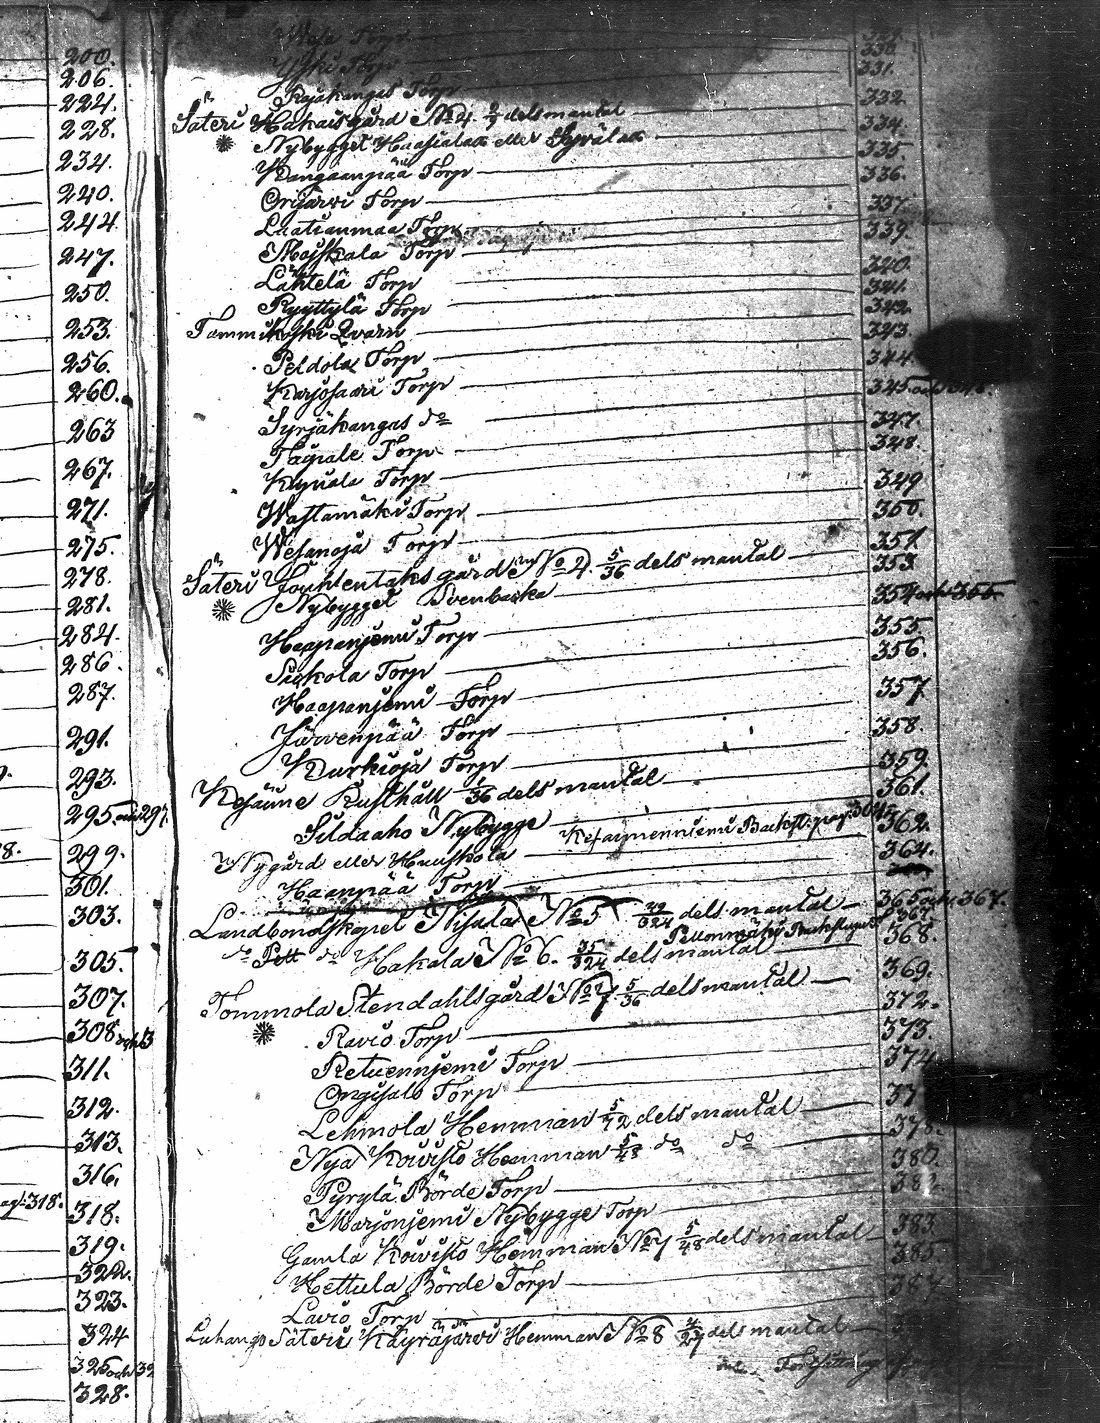 200.
206.
224.
228.
234.
240.
244.
247.
250.
253.
256.
260.
263
267.
271.
275.
278.
281.
284.
286.
287.
291.
293.
295 och 297.
299.
301.
303.
305.
307.
308 och 13
311.
312.
313.
316.
318.
319.
322.
323.
324
325 och 32
328.
Torp
Torp
Rajakangas Torp 331.
Säteri Hakais gård No 4. dels mantal 332
Nybygget Haasiala eller Syrälä 334.
Kangaanpää Torp 335.
Orijärvi Torp 336.
Laatianmaa Torp 337.
Majskala Torp 339.
Lähtelä Torp 340.
Ryyttylä Torp 341.
Tammikoski Qvarn 342.
Peldola Torp 343.
Karjosaari Torp 344.
Syrjäkangas do 345 och 346.
Taipale Torp 347.
Torp 348.
Wastamäki Torp 349
Wesanoja Torp 350.
Säteri Joutentaks gård No 2. 5/36 dels mantal 351.
Nybygget Svenbacka 353.
Haapanjemi Torp 354 och 355
Sickola Torp 355
Haapanjemi Torp 356.
Järvenpää Torp 357
Kurkioja Torp 358.
Rusthåll 1/36 dels mantal 359.
Sildaaho Nybygge 361.
Nygård eller Hauskola 362.
Haanpää Torp 364.
Landbondtorpet Nisula No 5 29/324 dels mantal 365 och 367.
do do Hakala No 6. 35/324 dels mantal 368.
Tommola Stendahlsgård No 7 5/36 dels mantal 369.
Ravio Torp 372.
Retuennjemi Torp 373.
Ongisalo Torp 374
Lehmola Hemman 5/72 dels mantal
Nya Koivisto Hemman 5/48 do do 378.
Pyrylä Börde Torp 380.
Marjonjemi Nybygge Torp 382.
Gamla Koivisto Hemman No 7 5/48 dels mantal 383.
Hettula Börde Torp 385.
Lavio Torp 387
Luhango Säteri Käyräjärvi Hemman No 8 4/27 dels mantal